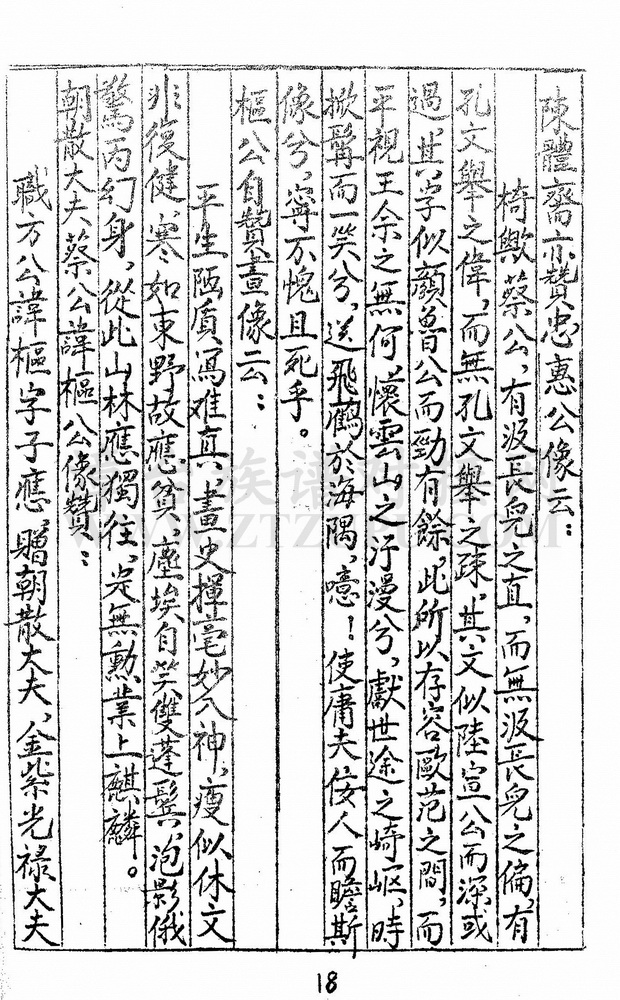 陳體齋亦贊忠惠公像云：
椅歟蔡公，有汲長孺之直，而無汲長孺之偏，有
孔文舉之偉，而無孔文舉之疎，其文似陸宣公而深或
過，其字似顏魯公而勁有餘，此所以存容歐范之間，而
平視王佘之無何，懷雲山之汗漫兮，獻世途之崎岖，時
掀髯而一笑兮，送飛鶴於海隅，噫！使庸夫佞人而瞻斯
像兮，寧不愧且死乎。
樞公自贊畫像云：
平生陋质寫难真，畫史揮毫妙入神，瘦似休文
非復健，寒如東野故應贫，塵埃自笑雙蓬鬓，泡影俄
驚丙幻身，從此山林應獨往，定無勳業上麒麟。
朝散大夫蔡公諱樞公像贊：
職方公諱樞字子應，贈朝散大夫，金紫光禄大夫
18